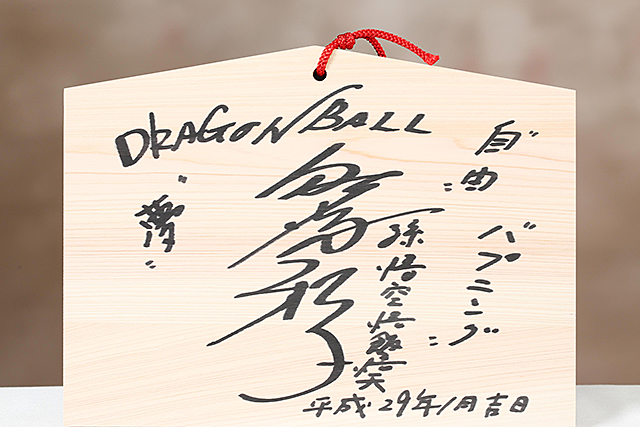 DRAGON BALL
"自由"
"ハプニング"
孫悟空悟飯悟天
"夢"
平成29年1月吉日